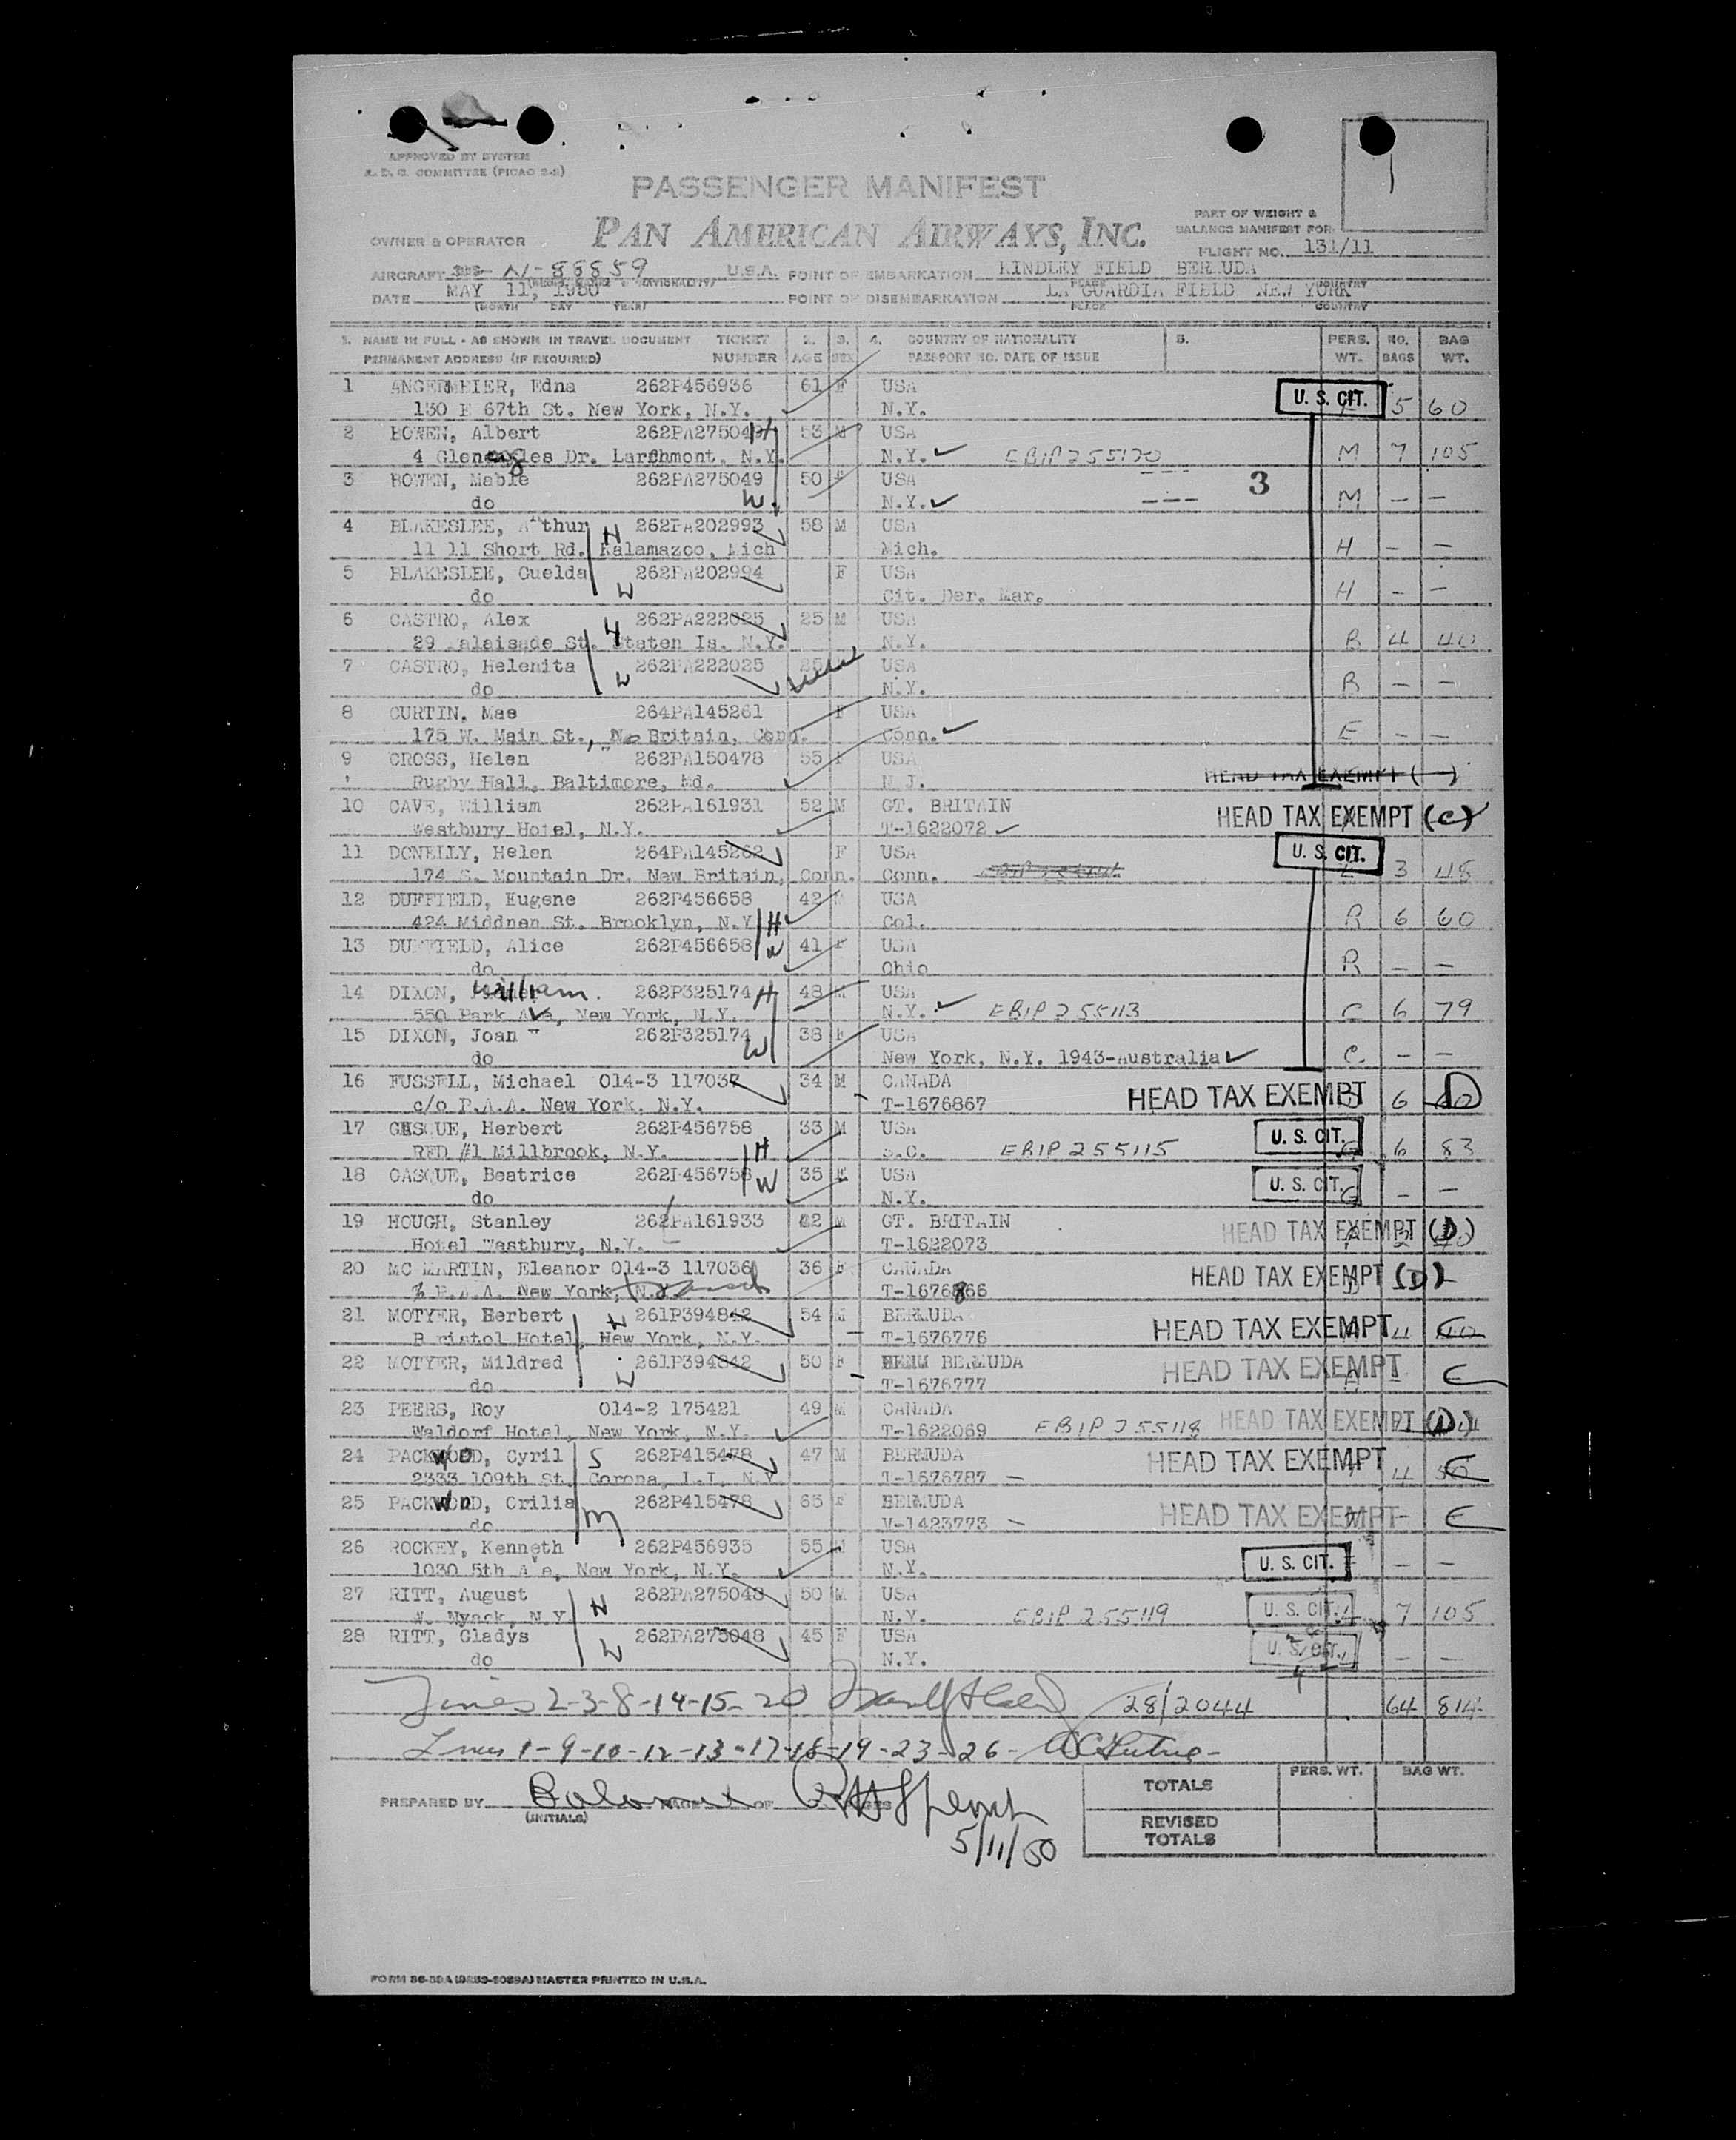 APPROVED BY SYSTEM
A. D. C. COMMITTEE (PICAO 2-2)
PASSENGER MANIFEST
PAN AMERICAN AIRWAYS, INC.
PART OF WEIGHT &
BALANCE MANIFEST FOR
OWNER & OPERATOR
FLIGHT NO. 131/11
AIRCRAFT N-88859 U.S.A. POINT OF EMBARKATION KINDLEY FIELD BERMUDA
DATE MAY 11, 1950 POINT OF DISEMBARKATION LA GUARDIA FIELD NEW YORK
(MONTH DAY YEAR) PLACE COUNTRY
1. NAME IN FULL - AS SHOWN IN TRAVEL DOCUMENT TICKET 2. 3. 4. COUNTRY OF NATIONALITY 5. PERS. NO. BAG
PERMANENT ADDRESS (IF REQUIRED) NUMBER AGE SEX PASSPORT NO. DATE OF ISSUE WT. BAGS WT.
1 ANGERMEIER, Edna 262P456936 61 F USA U. S. CIT. 5 60
130 E 67th St. New York, N.Y. N.Y.
2 BOWEN, Albert 262PA275049 H 53 M USA
4 Gleneagles Dr. Larchmont, N.Y. N.Y. EBIP255120 M 7 105
3 BOWEN, Mable 262PA275049 50 F USA 3
do W. N.Y. --- M - -
4 BLAKESLEE, Arthur H 262PA202993 58 M USA
11 11 Short Rd. Kalamazoo, Mich Mich. H - -
5 BLAKESLEE, Guelda 262PA202994 F USA
do W Cit. Der. Mar. H - -
6 CASTRO, Alex H 262PA222025 25 M USA
29 Palaisade St. Staten Is. N.Y. N.Y. R 4 40
7 CASTRO, Helenita W 262PA222025 USA
do N.Y. R - -
8 CURTIN, Mae 264PA145261 F USA
175 W. Main St., N. Britain, Conn. Conn. E - -
9 CROSS, Helen 262PA150478 55 F USA
Rugby Hall, Baltimore, Md. N.J. HEAD TAX EXEMPT ( )
10 CAVE, William 262PA161931 52 M GT. BRITAIN HEAD TAX EXEMPT (C)
Westbury Hotel, N.Y. T-1622072
11 DONELLY, Helen 264PA145262 F USA U. S. CIT.
174 S. Mountain Dr. New Britain, Conn. Conn. 3 48
12 DUFFIELD, Eugene 262P456658 42 M USA
424 Middnen St. Brooklyn, N.Y. H Col. R 6 60
13 DUFFIELD, Alice 262P456658 W 41 F USA
do Ohio R - -
14 DIXON, William. 262P325174 H 48 M USA
550 Park Ave, New York, N.Y. N.Y. EBIP255113 C 6 79
15 DIXON, Joan 262P325174 W 38 F USA
do New York, N.Y. 1943-Australia C - -
16 FUSSELL, Michael 014-3 117037 34 M CANADA HEAD TAX EXEMPT D
c/o P.A.A. New York, N.Y. T-1676867 6
17 GASQUE, Herbert 262P456758 33 M USA U. S. CIT.
RED #1 Millbrook, N.Y. H S.C. EBIP255115 G 6 83
18 GASQUE, Beatrice 262P456758 W 35 F USA U. S. CIT.
do N.Y. G - -
19 HOUGH, Stanley 262PA161933 62 M GT. BRITAIN HEAD TAX EXEMPT (D)
Hotel Westbury, N.Y. T-1622073
20 MC MARTIN, Eleanor 014-3 117036 36 F CANADA HEAD TAX EXEMPT (D)
P.A.A. New York, N.Y. T-1676866
21 MOTYER, Herbert H 261P394842 54 M BERMUDA HEAD TAX EXEMPT C
Bristol Hotel, New York, N.Y. T-1676776 4 40
22 MOTYER, Mildred W 261P394842 50 F BERMUDA HEAD TAX EXEMPT C
do T-1676777
23 PEERS, Roy 014-2 175421 49 M CANADA HEAD TAX EXEMPT (D)
Waldorf Hotel, New York, N.Y. T-1622069 EBIP255118
24 PACKWOOD, Cyril S 262P415478 47 M BERMUDA HEAD TAX EXEMPT C
2333 109th St. Corona, L.I. N.Y. T-1676787 4 50
25 PACKWOOD, Crilia M 262P415478 65 F BERMUDA HEAD TAX EXEMPT C
do V-1423773
26 ROCKEY, Kenneth 262P456935 55 M USA U. S. CIT.
1030 5th Ave, New York, N.Y. N.Y. - -
27 RITT, August H 262PA275048 50 M USA U. S. CIT.
W. Nyack, N.Y. N.Y. EBIP255119 7 105
28 RITT, Gladys W 262PA275048 45 F USA U. S. CIT.
do N.Y. - -
Lines 2-3-8-14-15-20 28/2044 64 814
Lines 1-9-10-12-13-17-18-19-23-26-
PERS. WT. BAG WT.
TOTALS
PREPARED BY
(INITIALS)
REVISED
TOTALS
5/11/50
MASTER PRINTED IN U.S.A.